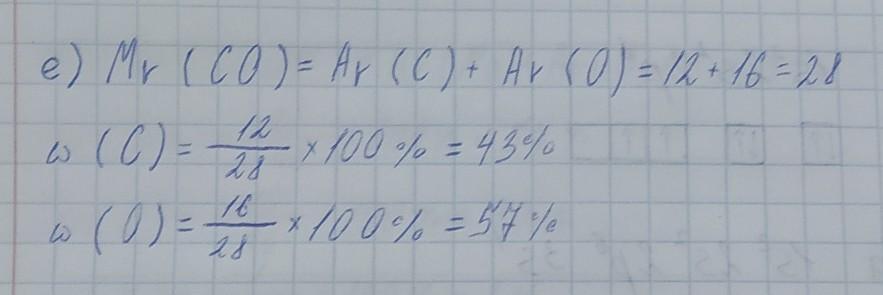 e) Mr (CO) = Ar (C) + Ar (O) = 12 + 16 = 28
ω (C) = 12/28 × 100 % = 43%
ω (O) = 16/28 × 100 % = 57%